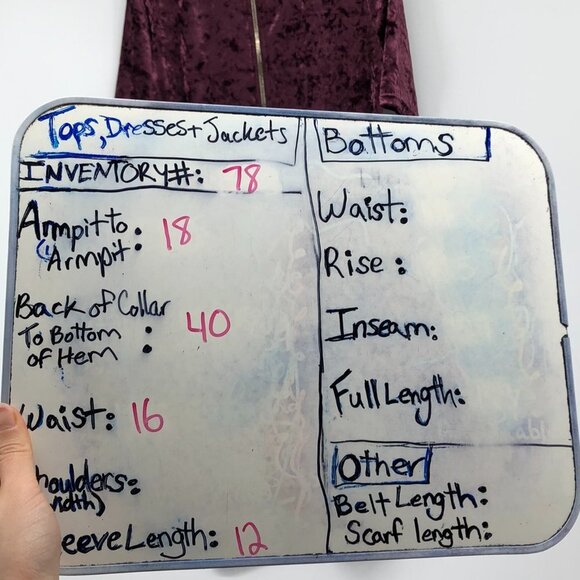 Tops, Dresses + Jackets
INVENTORY#: 78
Armpit to
Armpit: 18
Back of Collar
To Bottom : 40
of Hem
Waist: 16
houlders:
idth)
eeve Length: 12
Bottoms
Waist:
Rise :
Inseam:
Full Length:
Other
Belt Length:
Scarf length: